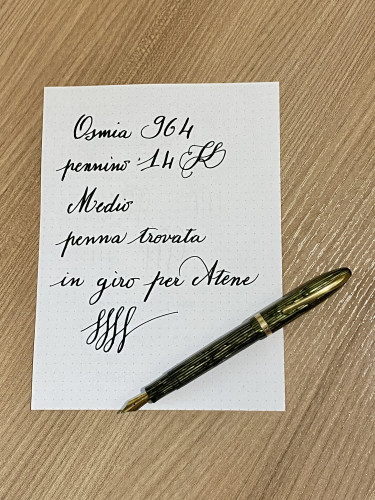 Osmia 964
pennino 14
Medio
penna trovata
in giro per Atene